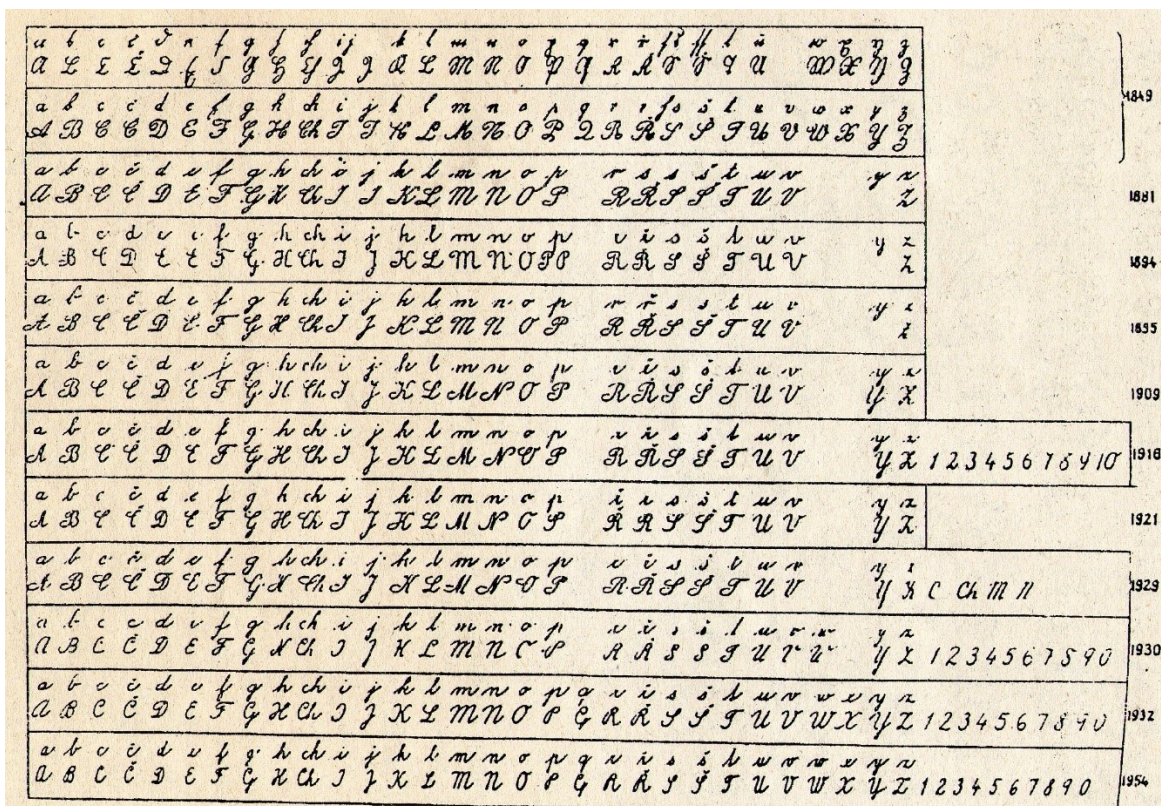 a b c č d e f g h ch i j k l m n o p q r ř s š t u v w x y z
A B C Č D E F G H Ch I J K L M N O P Q R Ř S Š T U V W X Y Z
1849
a b c č d e f g h ch i j k l m n o p r s s š t u v y z
A B C Č D E F G H Ch I J K L M N O P R Ř S Š T U V Z
1881
a b c d e f g h ch i j k l m n o p r ř s š t u v y z
A B C D E F G H Ch I J K L M N O P R Ř S Š T U V Z
1894
a b c č d e f g h ch i j k l m n o p r ř s š t u v y z
A B C Č D E F G H Ch I J K L M N O P R Ř S Š T U V Z
a b c č d e f g h ch i j k l m n o p r ř s š t u v y z
A B C Č D E F G H Ch I J K L M N O P R Ř S Š T U V Y Z
1909
a b c č d e f g h ch i j k l m n o p r ř s š t u v y z
A B C Č D E F G H Ch I J K L M N O P R Ř S Š T U V Y Z 1 2 3 4 5 6 7 8 9 10
a b c č d e f g h ch i j k l m n o p ř r s š t u v y z
A B C Č D E F G H Ch I J K L M N O P Ř R S Š T U V Y Z
1921
a b c č d e f g h ch i j k l m n o p r ř s š t u v y z
A B C Č D E F G H Ch I J K L M N O P R Ř S Š T U V Y Z C Ch M N
1929
a b c č d e f g h ch i j k l m n o p r ř s š t u v w y z
A B C Č D E F G H Ch I J K L M N O P R Ř S Š T U V W Y Z 1 2 3 4 5 6 7 8 9 0
1930
a b c č d e f g h ch i j k l m n o p q r ř s š t u v w x y z
A B C Č D E F G H Ch I J K L M N O P Q R Ř S Š T U V W X Y Z 1 2 3 4 5 6 7 8 9 0
1932
a b c č d e f g h ch i j k l m n o p q r ř s š t u v w x y z
A B C Č D E F G H Ch I J K L M N O P Q R Ř S Š T U V W X Y Z 1 2 3 4 5 6 7 8 9 0
1954